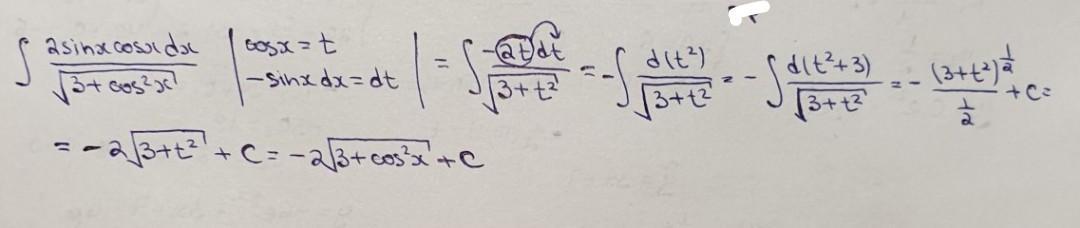 ∫ 2sinxcosxdx / √(3+cos²x) | cosx = t −sinxdx = dt | = ∫ −2tdt / √(3+t²) = −∫ d(t²) / √(3+t²) = −∫ d(t²+3) / √(3+t²) = − (3+t²)^(1/2) / (1/2) + C =
= −2√(3+t²) + C = −2√(3+cos²x) + C